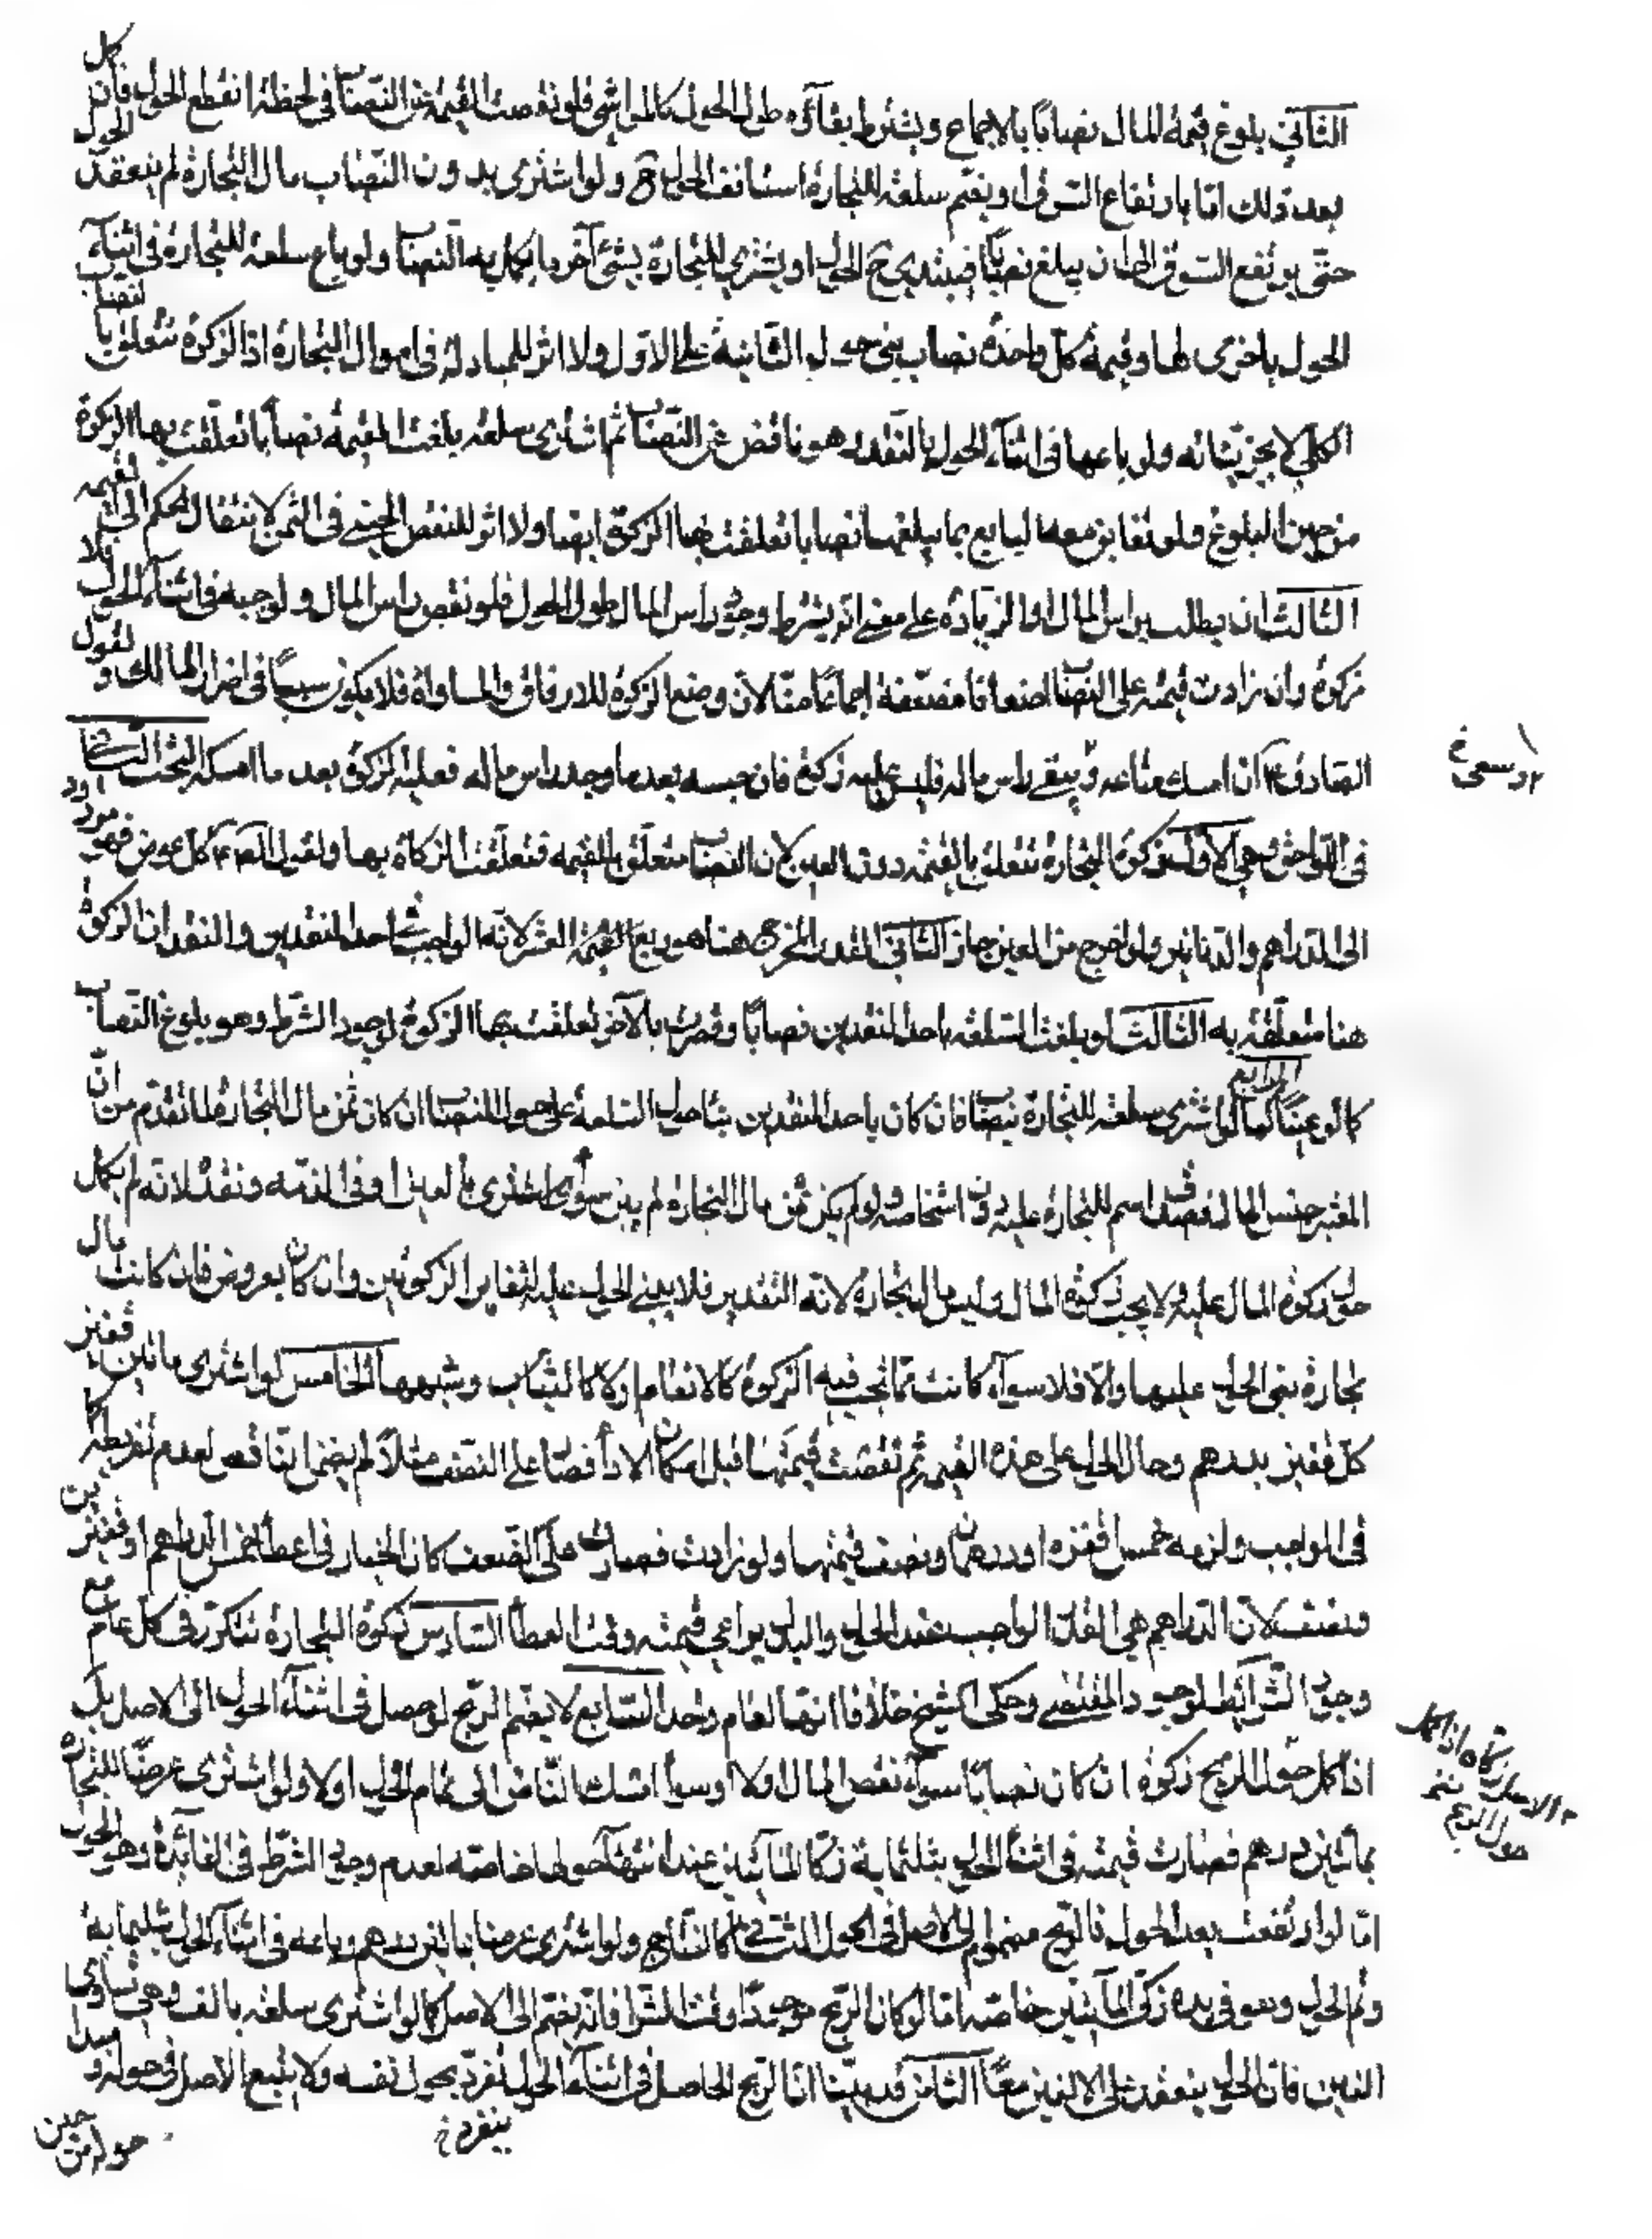 الثاني بلوغ قيمة المال نصابًا بالاجماع ويشترط بقاؤه طول الحول كالمواشي فلو نقصت القيمة عن النصاب في لحظة انقطع الحول فان كمل
بعد ذلك اما بارتفاع السوق او بضم سلعة للتجارة استانف الحول ح ولو اشترى بدون النصاب مال التجارة لم ينعقد الحول
حتى يرتفع السوق الى ان يبلغ نصابًا فيبتدى ح الحول او يشترى للتجارة بشئ آخر ما يكمل به النصاب ولو باع سلعة للتجارة في اثناء
الحول باخرى لها وقيمة كل واحدة نصاب بنى حول الثانية على الاول ولا اثر للمبادلة في اموال التجارة اذ الزكوة تتعلق بالنصاب
الكلي لا بجزئياته ولو باعها في اثناء الحول بالنقد وهو ناقص عن النصاب ثم اشترى سلعة بلغت القيمة نصابًا تعلقت بها الزكوة
من حين البلوغ ولو تقابض معه البايع بما يبلغها نصابا تعلقت بها الزكوة ايضا ولا اثر للنقص في الثمن لانتقال الحكم الى القيمة
الثالث ان يطلب براس المال او الزيادة على معنى انه يشترط وجود راس المال طول الحول فلو نقص راس المال ولو حبة في اثناء الحول فلا
زكوة وان زادت قيمته على النصاب اضعافا مضعفة اجماعًا منا لان وضع الزكوة للارفاق والمساواة فلا يكون سببًا في اضرار المالك ولقول
الصادق ع ان امسك متاعه ويبقى راس ماله فليس عليه زكوة فان حبسه بعد ما وجد راس ماله فعليه الزكوة بعد ما امسكه البحث الثاني
في اللواحق وهي الاول زكوة التجارة تتعلق بالقيمة دون العين لان النصاب متعلق بالقيمة فتعلقت الزكاة بها ولقوله ع كل عرض فهو مردود
الى الدراهم والدنانير ولو اخرج من العين جاز الثاني القدر المخرج هنا هو ربع القيمة العشر لانه الواجب في احد النقدين والنقدان الزكوة
هنا متعلقة به الثالث لو بلغت السلعة باحد النقدين نصابًا وقصرت بالآخر تعلقت بها الزكوة لوجود الشرط وهو بلوغ النصاب
كما لو عينًا كمالًا الرابع لو اشترى سلعة للتجارة بنصاب فان كان باحد النقدين بنا حول السلعة على حول النصاب ان كان ثمن مال التجارة لما تقدم من ان
المعتبر جنس المال اسم للتجارة عليه دون اشخاصه ولو لم يكن ثمن مال التجارة لم يبن سواء اشترى بالعين او في الذمة ونقد لانه لم يكمل
حول زكوة المال عليه ولا يجب زكوة المال وليس مال التجارة لانه النقدين فلا يبنى الحول عليه لتغاير الزكوتين وان كان بعروض فان كانت مال
تجارة بنى الحول عليها والا فلا سواء كانت مما تجب فيه الزكوة كالانعام او لا كالثياب وشبهها الخامس لو اشترى مائتين قفيز
كل قفيز بدرهم وحال الحول على هذه القيمة ثم نقصت قيمتها قبل امكان الاداء فصار على النصف مثلًا لم يضمن الناقص لعدم تفريطه كما
في المواجب ولزمه خمس اقفزه او درهمان ونصف قيمتها ولو زادت فصارت على الضعف كان الخيار في اعطاء خمس الدراهم او قفيزين
ونصف لان الدراهم هي القدر الواجب عند الحول والبدل يراعي قيمته وقت العطاء السادس زكوة التجارة تتكرر في كل عام مع
وجود الشرائط لوجود المقتضي وحكى الشيخ خلافا انها لعام واحد السابع لا يضم الربح لو حصل في اثناء الحول الى الاصل بل
اذا كمل حول الربح زكوة ان كان نصابًا سواء نقص المال اولا وسواء امسك الناض الى تمام الحول اولا ولو اشترى عرضًا للتجارة
بمأتين درهم فصارت قيمته في اثناء الحول بثلثماية زكا المأتين عند انتهاء حولها خاصة لعدم وجود الشرط في الفائدة وهو الحول
اما لو ارتفعت بعد الحول فالربح مضموم الى الاصل في الحول الثاني كالنتاج ولو اشترى عرضا بمأتين درهم وباعه في اثناء الحول بثلثماية
وتم الحول وهو في يده زكى المأتين خاصة اما لو كان الربح موجودًا وقت الشرا فانه يضم الى الاصل كما لو اشترى سلعة بالف وهي تساوي
الفين فان الحول ينعقد على الالفين معًا الثامن قد بينا ان الربح الحاصل في اثناء الحول تفرد بحول نفسه ولا يتبع الاصل في حوله ومبدا
ينفرد خ
حوله من حين
الاصل زكاه اذا كمل
حول الربح